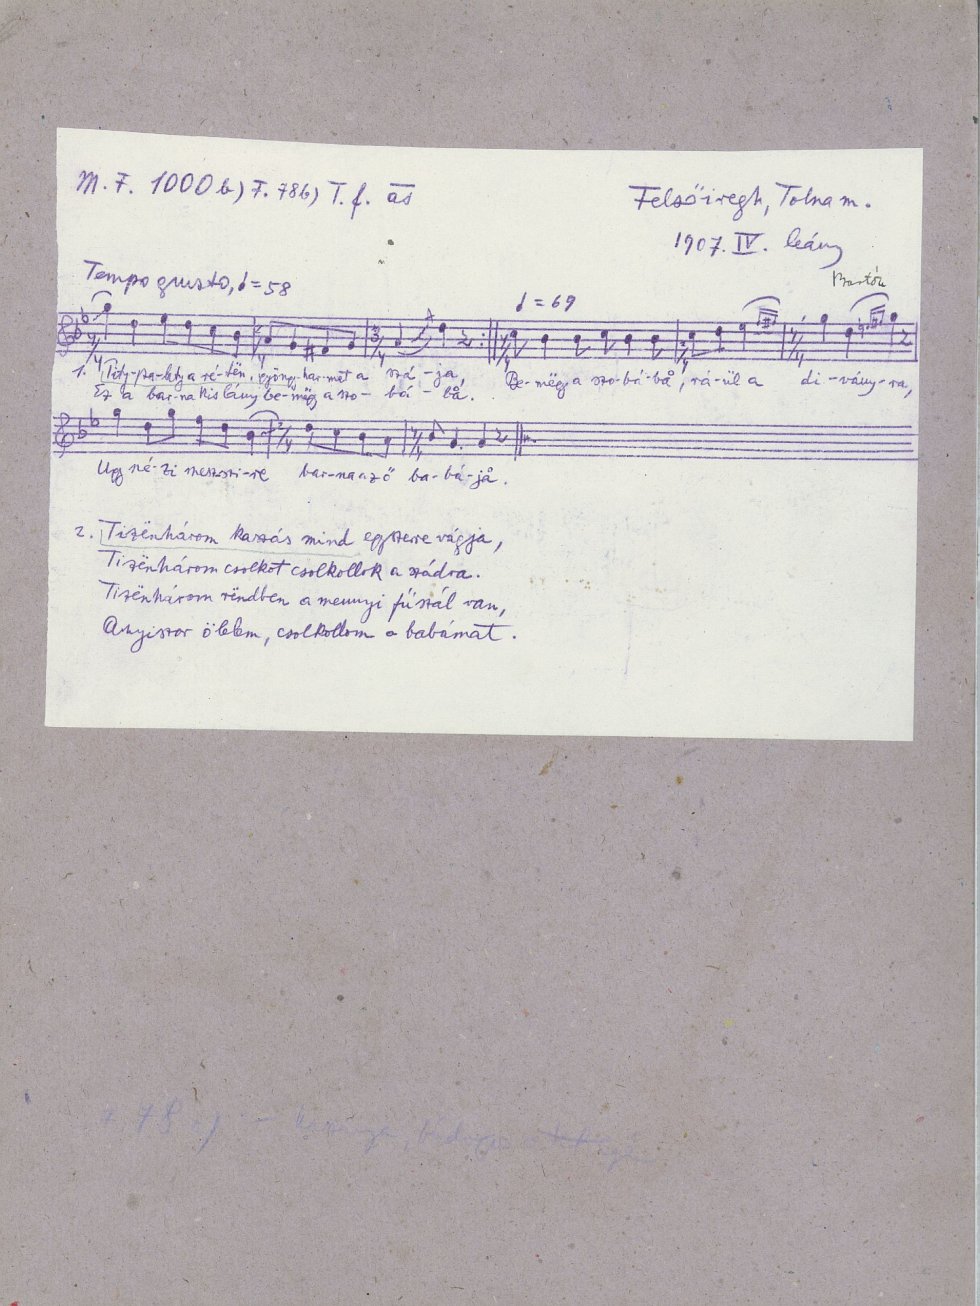 M. F. 1000 b) F. 786) T. f. as
Felsőiregh, Tolna m.
1907. IV. leány
Bartók
Tempo giusto, ♩ = 58
♩ = 69
1. Pity-pa-laty a ré-tën, gyöngy-har-mat a szá-ja, Be-mëgy a szo-bá-bå, rá-ül a di-vány-ra,
Ez a bar-na kis lány be-mëgy a szo-bá-bå.
Ugy né-zi messzi-re barna sző ba-bá-jå.
2. Tizënhárom kaszás mind egyszerre vágja,
Tizënhárom csolkot csolkollok a szádra.
Tizënhárom rëndben a mennyi fűszál van,
Anyiszor ölelem, csolkollom a babámat.